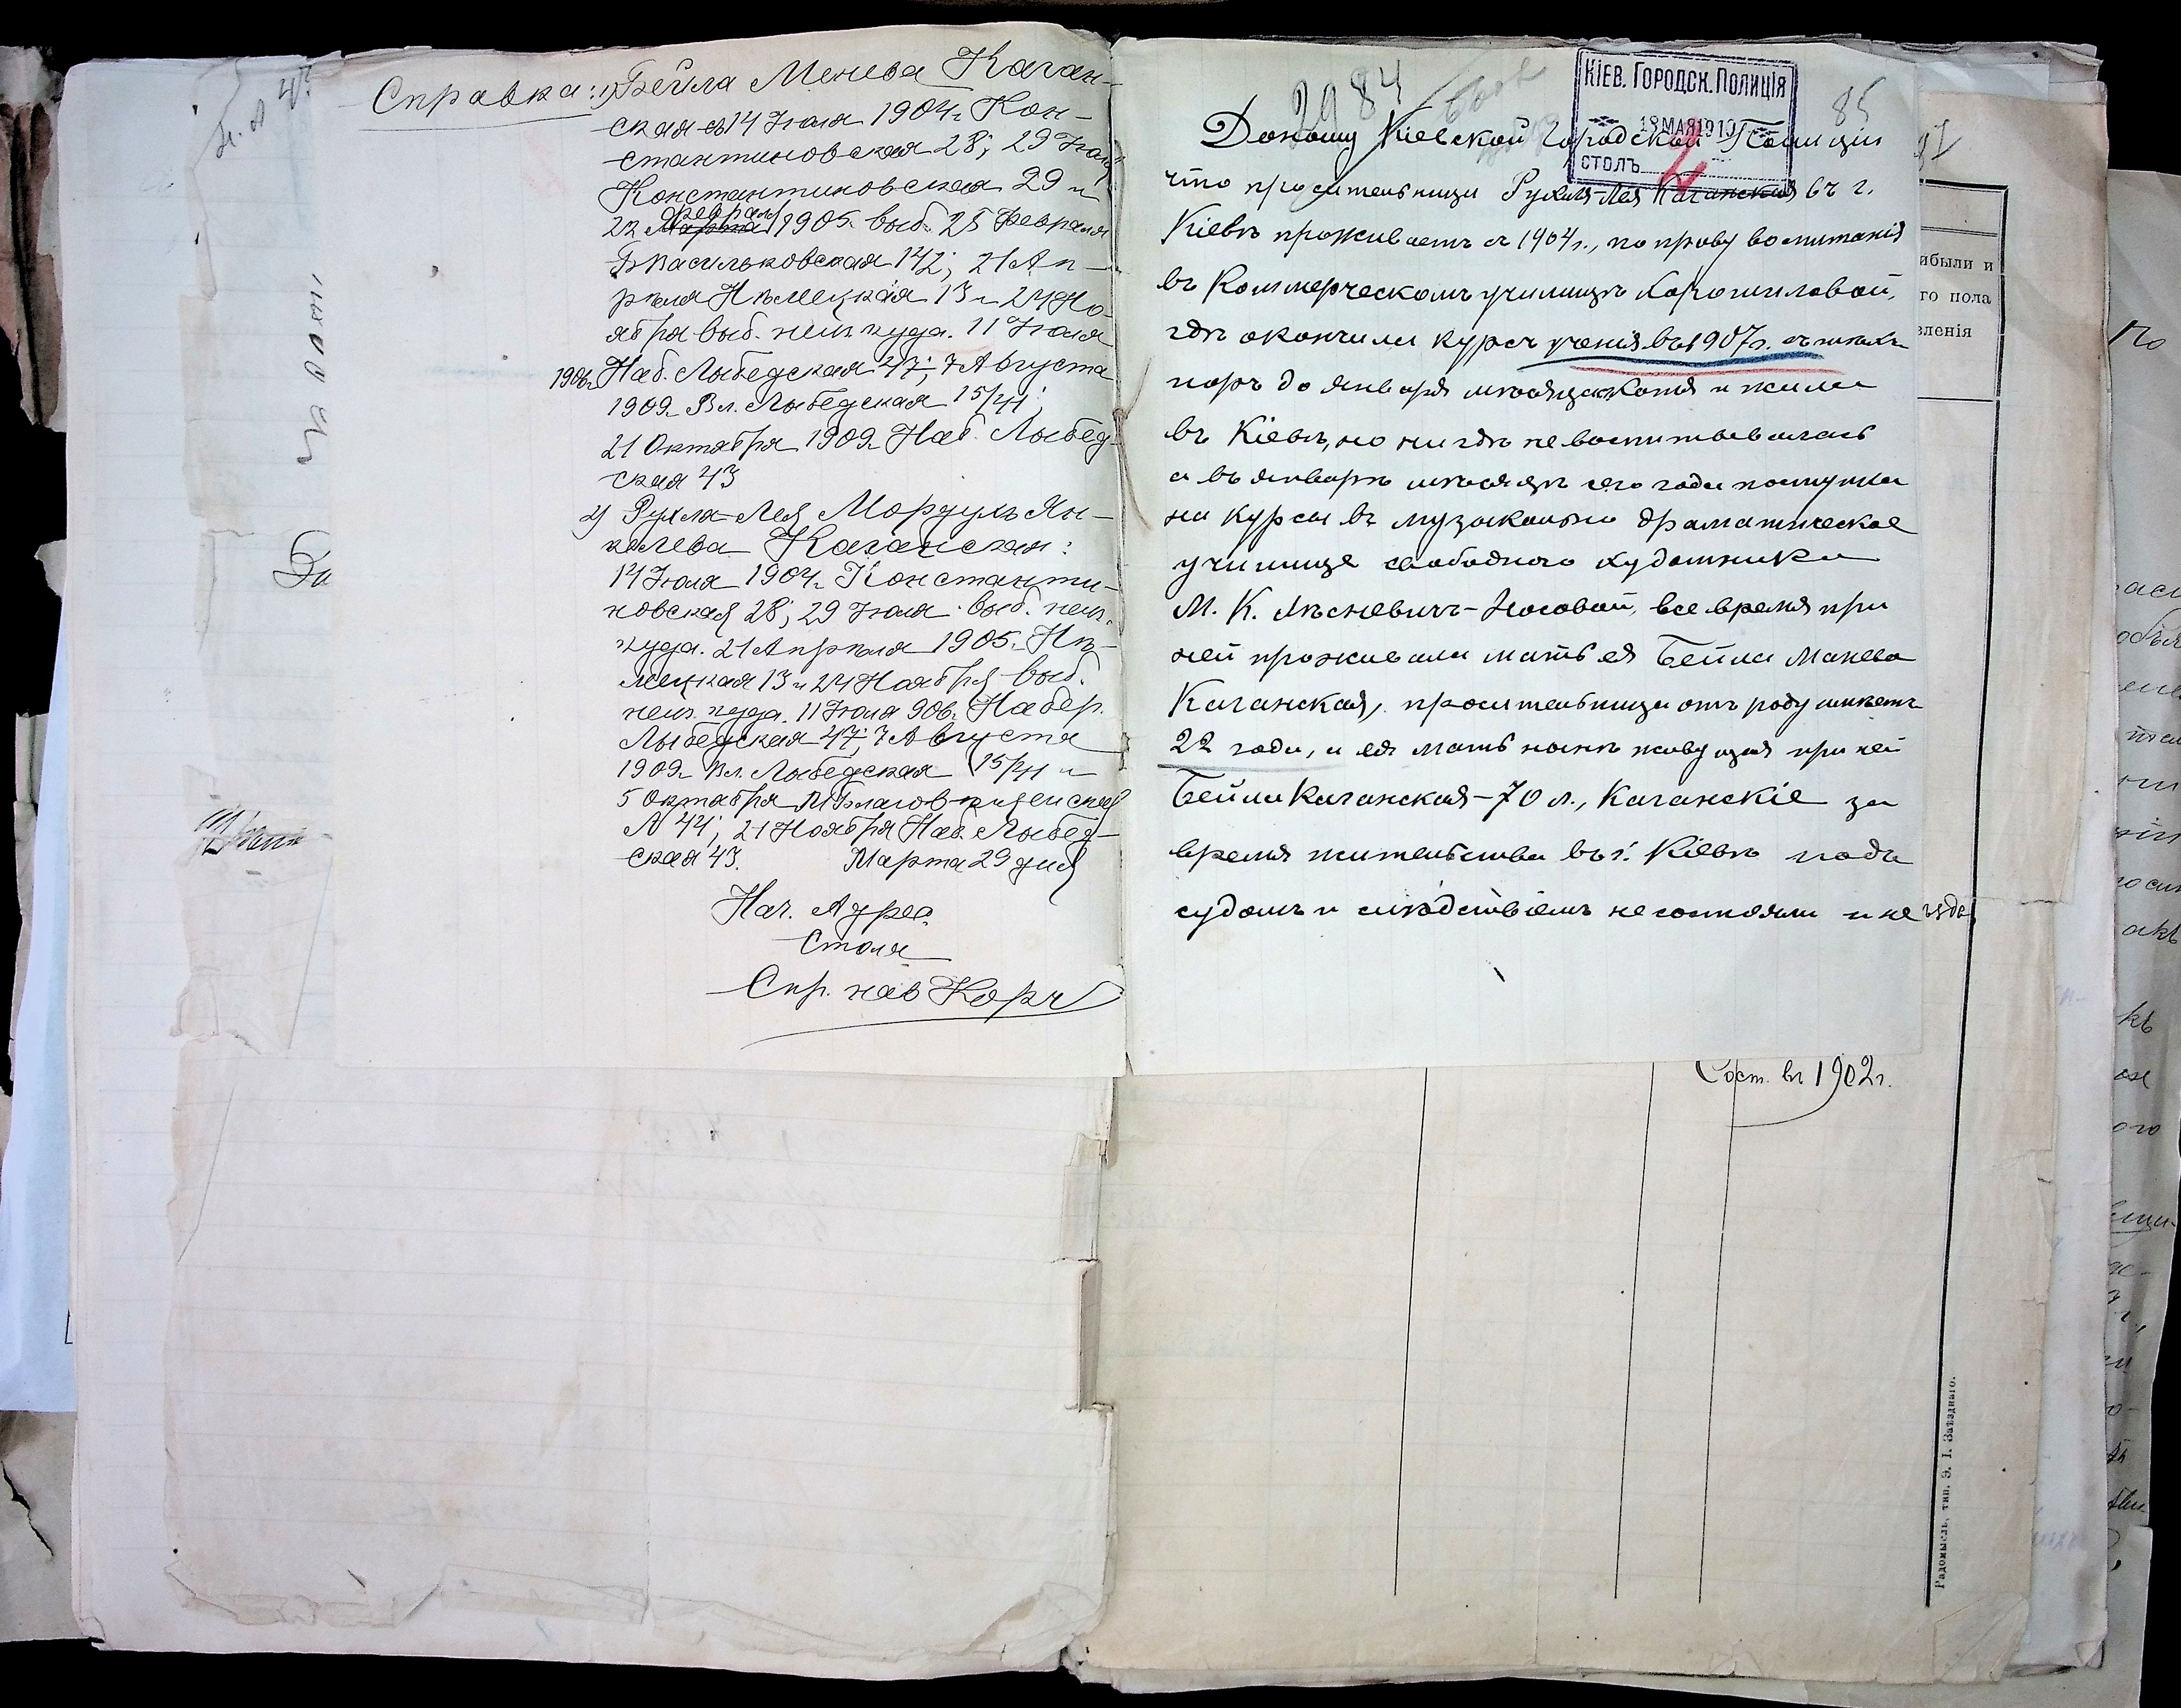 Справка: 1) Бейла Менева Каган-
ская съ 14 Іюля 1904 г. Кон-
стантиновская 28; 29 Іюля
Константиновская 29 и
22 февраля 1905 г. выб. 25 Февраля
Б Васильковская 142; 21 Ап-
рѣля Нѣмецкая 13 и 24 Но-
ября выб. неиз. куда. 11 Іюля
1906 г. Наб. Лыбедская 47; 7 Августа
1909 г. Вл. Лыбедская 15/41;
21 Октября 1909 г. Наб. Лыбед-
ская 43
2) Рухля-Лея Мордуль Ян-
келева Каганская:
14 Іюля 1904 г. Константи-
новская 28; 29 Іюля выб. неиз.
куда. 21 Апрѣля 1905 г. Нѣ-
мецкая 13 и 24 Ноября выб.
неиз. куда. 11 Іюля 906 г. Набер.
Лыбедская 47; 7 Августа
1909 г. Вл. Лыбедская 15/41 и
5 Октября М Благовѣщенская
№ 44; 21 Ноября Наб. Лыбед-
ская 43. Марта 29 дня
Нач. Адрес.
Стола
2984
85
КІЕВ. ГОРОДСК. ПОЛИЦІЯ
18 МАЯ 1910
СТОЛЪ
Доношу Кіевской Городской Полиціи
что просительница Рухля-Лея Каганская въ г.
Кіевѣ проживаетъ съ 1904 г., по праву воспитанія
въ Коммерческомъ училищѣ Хорошиловой,
гдѣ окончила курсъ ученія въ 1907 г. съ тѣхъ
поръ до января мѣсяца хотя и жила
въ Кіевѣ, но нигдѣ не воспитывалась
а въ январѣ мѣсяцѣ сего года поступила
на курсы въ музыкально драматическое
училище свободного художника
М. К. Лѣсневичъ-Носовой, все время при
ней проживала мать ея Бейла Манева
Каганская, просительница отъ роду имѣетъ
22 года, а ея мать нынѣ живущая при ней
Бейла Каганская - 70 л., Каганскіе за
время жительства въ г. Кіевѣ подъ
судомъ и слѣдствіемъ не состояли и не
Сост. въ 1902 г.
ибыли и
го пола
вленія
Радомысль, тип. Э. І. Заѣзднаго.